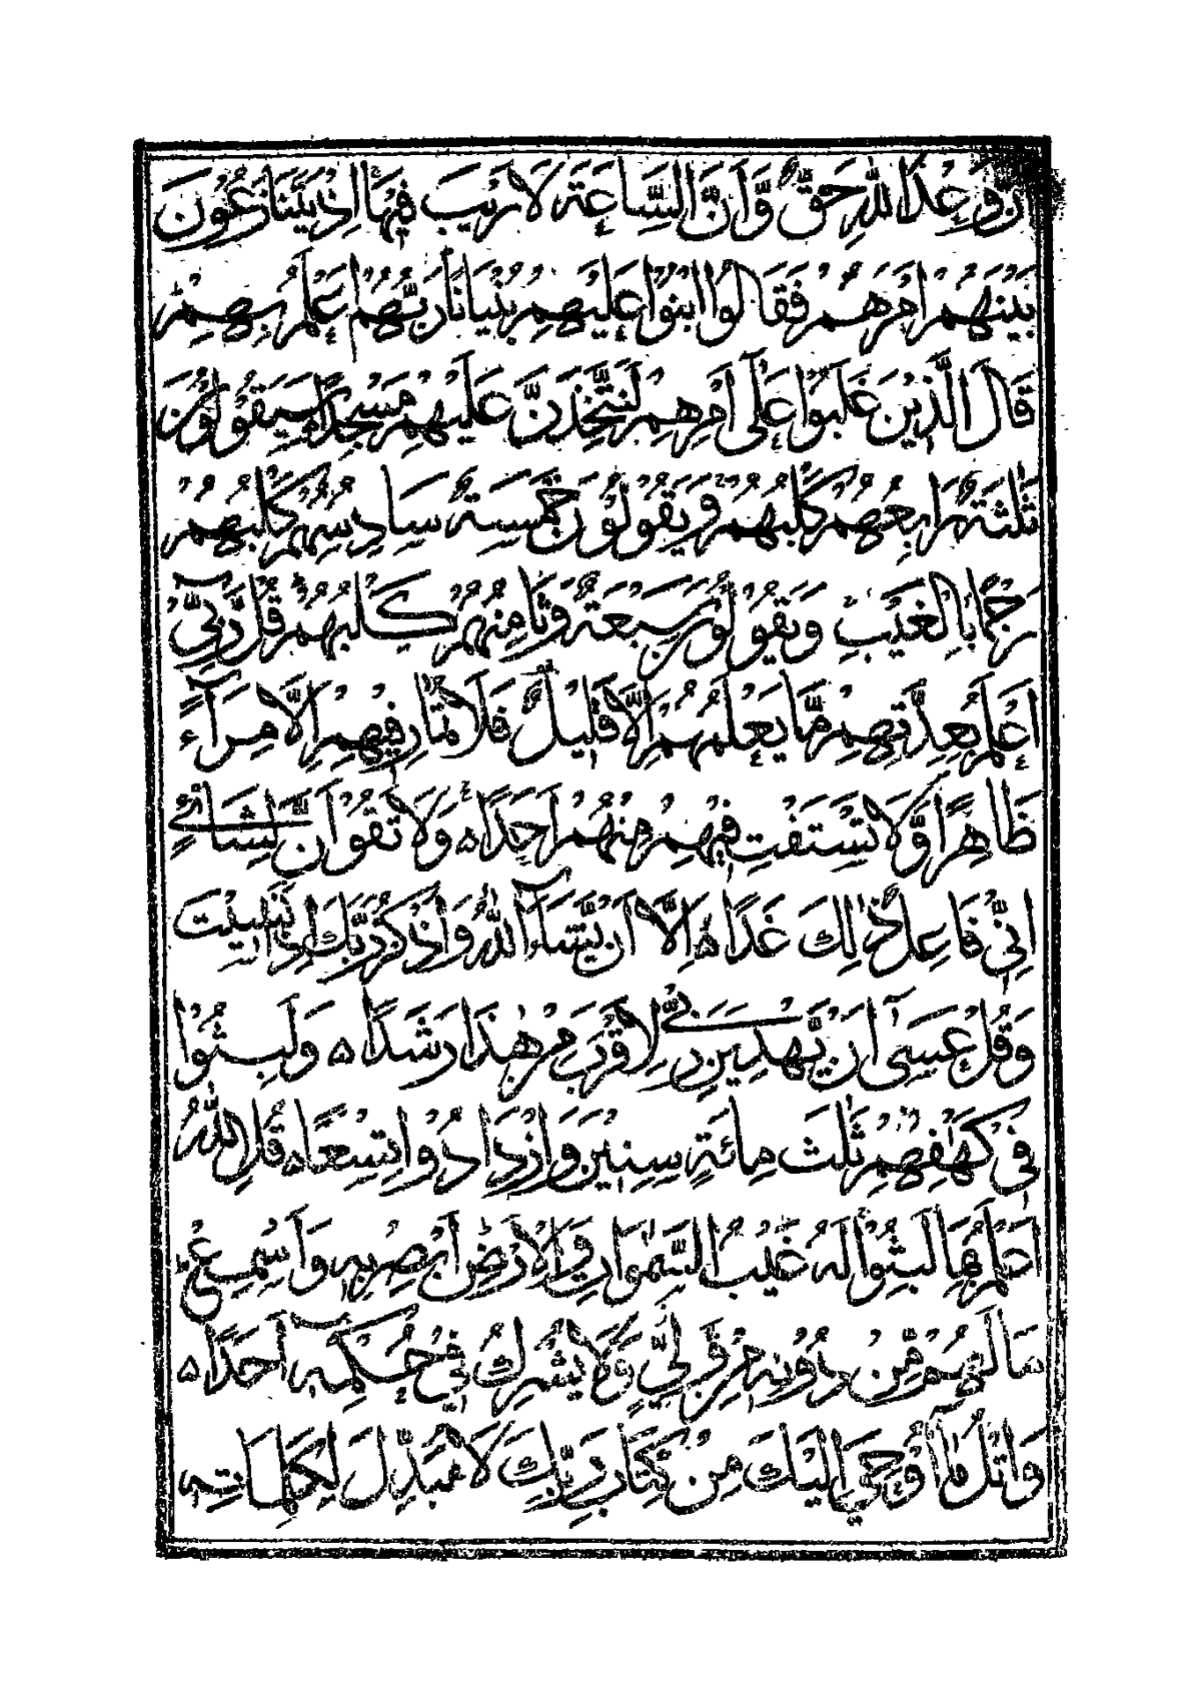 نَّ وَعْدَ اللّٰهِ حَقٌّ وَّاَنَّ السَّاعَةَ لَا رَيْبَ فِيْهَا اِذْ يَتَنَازَعُوْنَ
بَيْنَهُمْ اَمْرَهُمْ فَقَالُوا ابْنُوْا عَلَيْهِمْ بُنْيَانًا رَبُّهُمْ اَعْلَمُ بِهِمْ
قَالَ الَّذِيْنَ غَلَبُوْا عَلٰٓى اَمْرِهِمْ لَنَتَّخِذَنَّ عَلَيْهِمْ مَسْجِدًا سَيَقُوْلُوْنَ
ثَلٰثَةٌ رَّابِعُهُمْ كَلْبُهُمْ وَيَقُوْلُوْنَ خَمْسَةٌ سَادِسُهُمْ كَلْبُهُمْ
رَجْمًا بِالْغَيْبِ وَيَقُوْلُوْنَ سَبْعَةٌ وَثَامِنُهُمْ كَلْبُهُمْ قُلْ رَّبِّيْٓ
اَعْلَمُ بِعِدَّتِهِمْ مَّا يَعْلَمُهُمْ اِلَّا قَلِيْلٌ فَلَا تُمَارِ فِيْهِمْ اِلَّا مِرَآءً
ظَاهِرًا وَّلَا تَسْتَفْتِ فِيْهِمْ مِنْهُمْ اَحَدًا ۵ وَلَا تَقُوْلَنَّ لِشَائٍْ
اِنِّيْ فَاعِلٌ ذٰلِكَ غَدًا ۵ اِلَّا اَنْ يَّشَآءَ اللّٰهُ وَاذْكُرْ رَبَّكَ اِذَا نَسِيْتَ
وَقُلْ عَسٰٓى اَنْ يَّهْدِيَنِ رَبِّيْ لِاَقْرَبَ مِنْ هٰذَا رَشَدًا ۵ وَلَبِثُوْا
فِيْ كَهْفِهِمْ ثَلٰثَ مِائَةٍ سِنِيْنَ وَازْدَادُوْا تِسْعًا ۵ قُلِ اللّٰهُ
اَعْلَمُ بِمَا لَبِثُوْا لَهٗ غَيْبُ السَّمٰوَاتِ وَالْاَرْضِ اَبْصِرْ بِهٖ وَاَسْمِعْ
مَا لَهُمْ مِّنْ دُوْنِهٖ مِنْ وَّلِيٍّ وَّلَا يُشْرِكُ فِيْ حُكْمِهٖٓ اَحَدًا ۵
وَاتْلُ مَآ اُوْحِيَ اِلَيْكَ مِنْ كِتَابِ رَبِّكَ لَا مُبَدِّلَ لِكَلِمَاتِهٖ